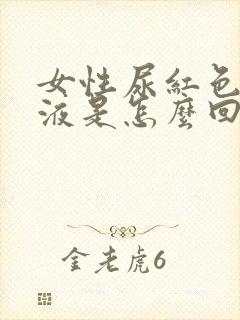 女性尿紅色
液是怎麼回
金老虎6